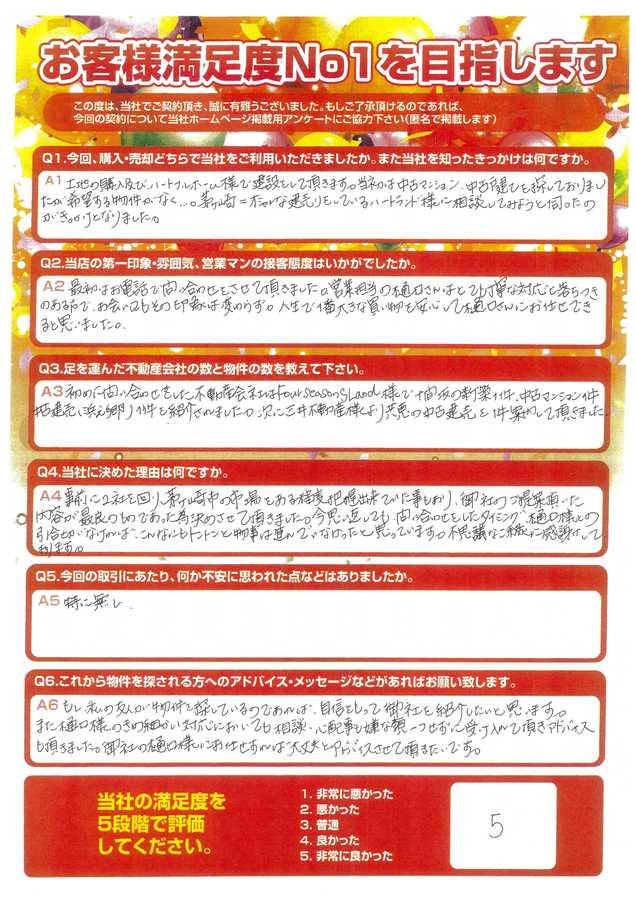 お客様満足度No1を目指します
この度は、当社でご契約頂き、誠に有難うございました。もしご了承頂けるのであれば、
今回の契約について当社ホームページ掲載用アンケートにご協力下さい(匿名で掲載します)
Q1.今回、購入・売却どちらで当社をご利用いただきましたか。また当社を知ったきっかけは何ですか。
A1 土地の購入及びハートフルホーム様で建設をして頂きます。当初は中古マンション、中古戸建てを探しておりまし
たが希望する物件がなく…。茅ヶ崎=な建売りをしているハートランド様に相談してみようと伺ったの
がきっかけとなりました。
Q2.当店の第一印象・雰囲気、営業マンの接客態度はいかがでしたか。
A2 最初はお電話で問い合わせをさせて頂きました。営業担当の樋口さんはとても丁寧な対応と落ちつき
のある方で、お会いしてもその印象は変わらず。人生で1番大きな買い物を安心して樋口さんにお任せでき
ると思いました。
Q3.足を運んだ不動産会社の数と物件の数を教えて下さい。
A3 初めに問い合わせをした不動産会社はfour seasons Land様で十間坂の新築1件、中古マンション1件
中古建売(浜之郷)1件を紹介されました。次に三井不動産様より の中古建売を1件案内して頂きました
Q4.当社に決めた理由は何ですか。
A4 事前に2社を回り、茅ヶ崎市の市場をある程度把握出来ていた事もあり、御社のご提案頂いた
内容が最良のものであった為決めさせて頂きました。今思い返しても、問い合わせをしたタイミング、樋口様との
引合せがなければ、こんなにもトントンと物事は運んでいなかったと思っています。不思議なご縁に感謝して
おります。
Q5.今回の取引にあたり、何か不安に思われた点などはありましたか。
A5 特に無し.
Q6.これから物件を探される方へのアドバイス・メッセージなどがあればお願い致します。
A6 もし私の友人が物件を探しているのであれば、自信をもって御社を紹介したいと思います。
また樋口様のきめ細かい対応においても相談・心配事も嫌な顔一つせずに受け入れて頂きアドバイス
も頂きました。御社の樋口様にお任せすれば大丈夫とアドバイスさせて頂きたいです。
当社の満足度を
5段階で評価
してください。
1. 非常に悪かった
2. 悪かった
3. 普通
4. 良かった
5. 非常に良かった
5